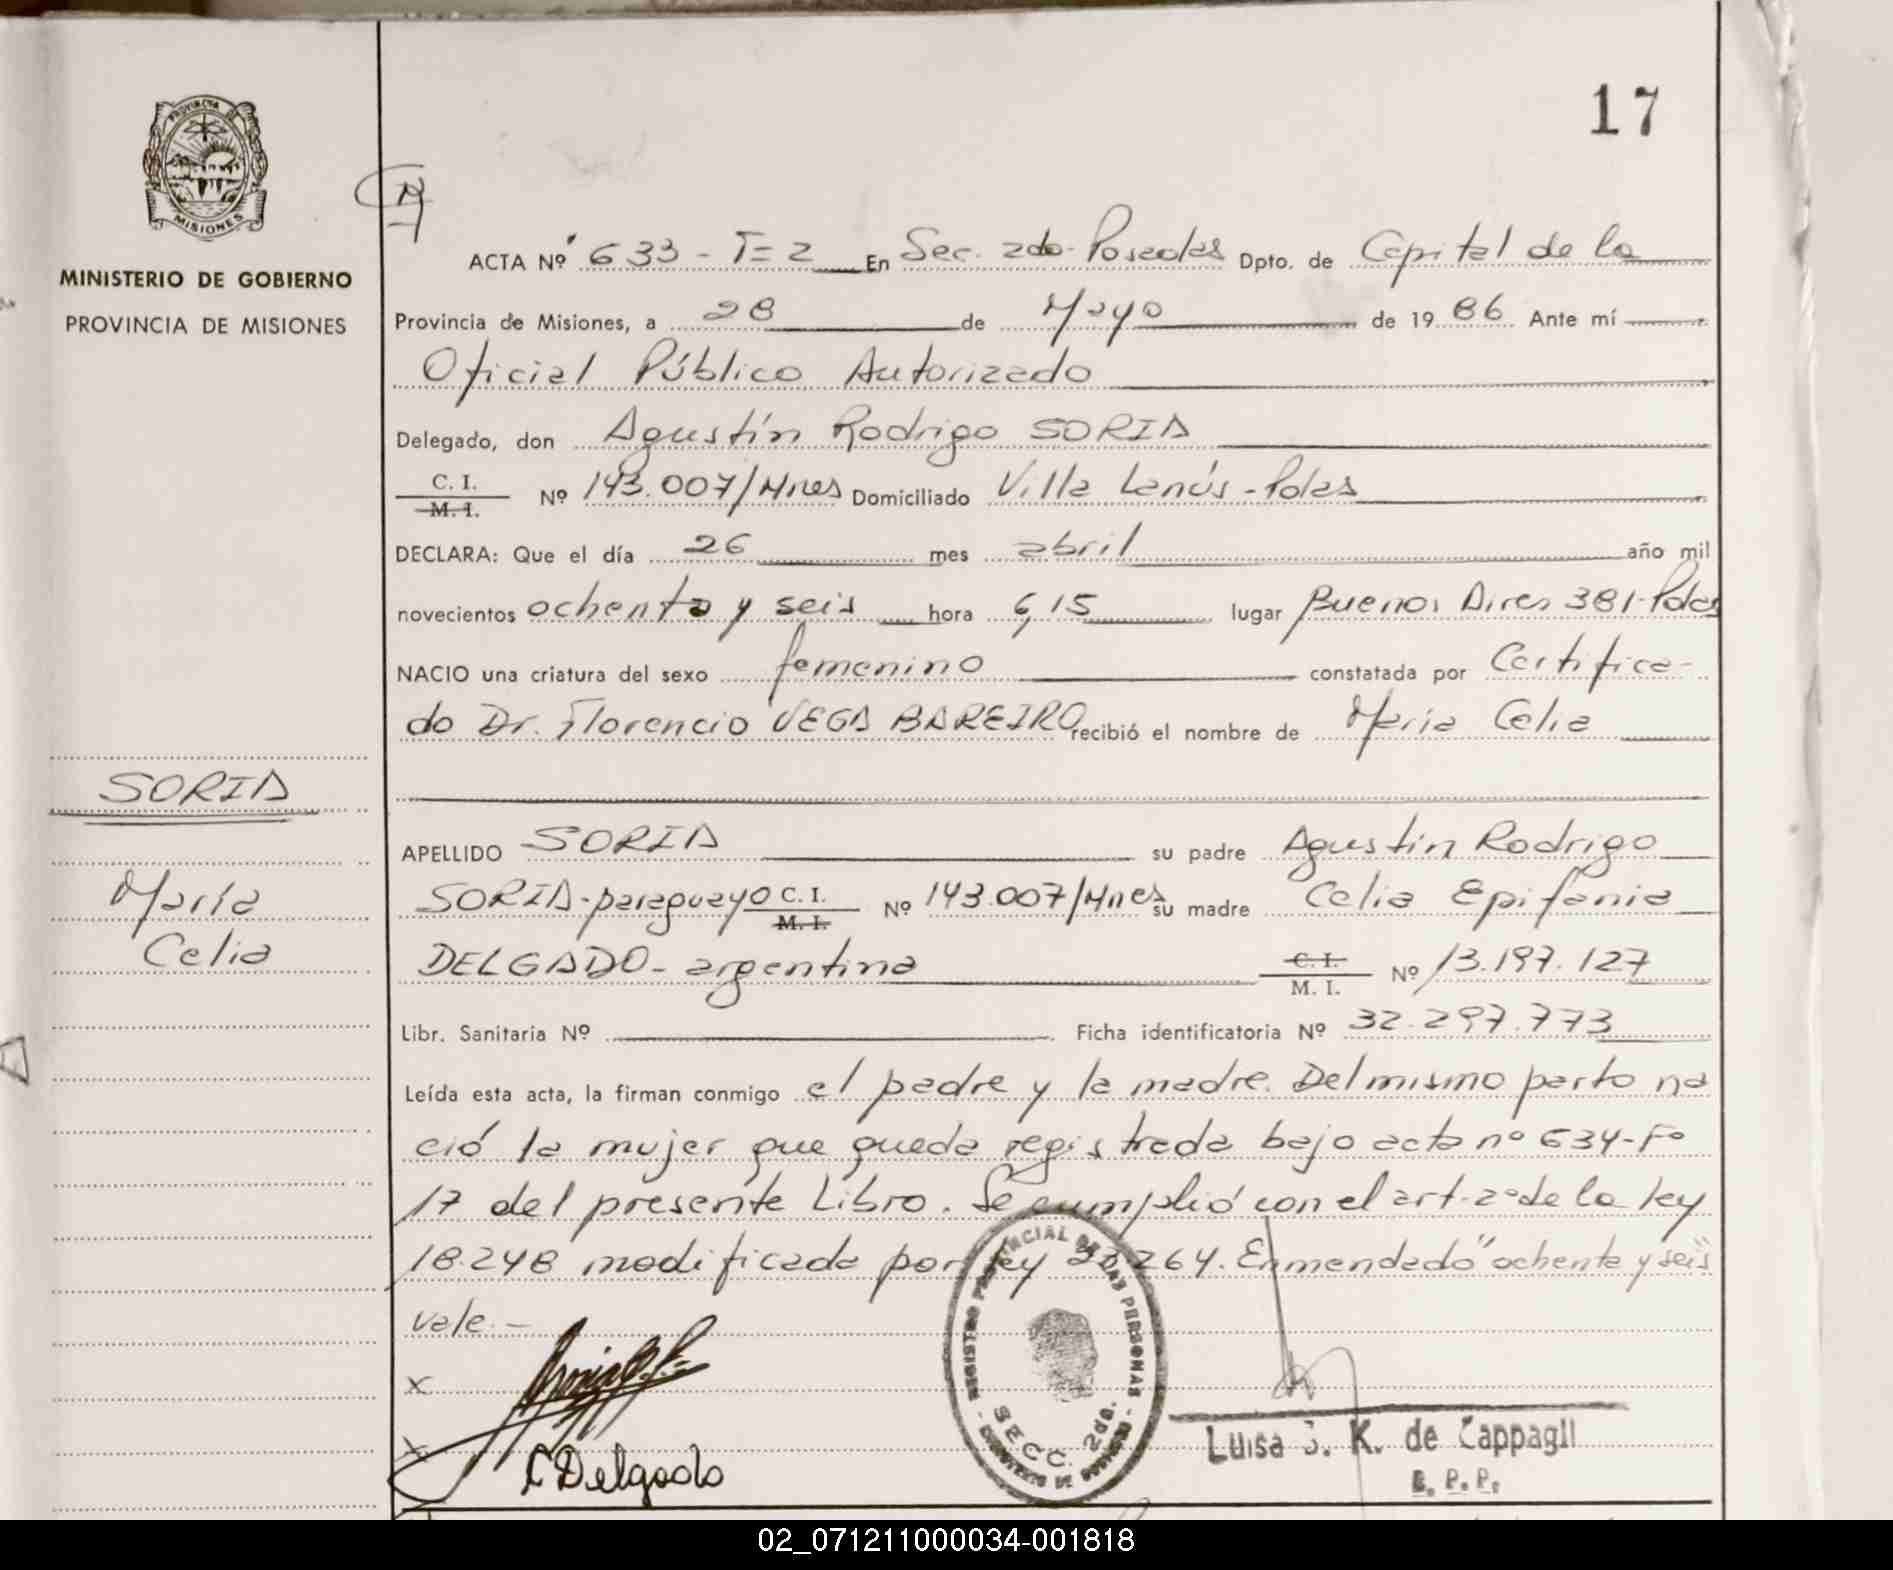 17
PROVINCIA DE
MISIONES
MINISTERIO DE GOBIERNO
PROVINCIA DE MISIONES
N
ACTA Nº 633 - T= 2 En Sec. 2do. Posadas Dpto. de Capital de la
Provincia de Misiones, a 28 de Mayo de 19 86 Ante mí
Oficial Público Autorizado
Delegado, don Agustín Rodrigo SORIA
C. I.
M. I.
Nº 143.007/Mnes Domiciliado Villa Lanús - Pdas
DECLARA: Que el día 26 mes abril año mil
novecientos ochenta y seis hora 6,15 lugar Buenos Aires 381-Pdas
NACIO una criatura del sexo femenino constatada por Certifica-
do Dr. Florencio VEGA BAREIRO recibió el nombre de María Celia
SORIA
María
Celia
APELLIDO SORIA su padre Agustín Rodrigo
SORIA - paraguayo C. I. Nº 143.007/Mnes su madre Celia Epifania
M. I.
DELGADO - argentina C. I. Nº 13.197.127
M. I.
Libr. Sanitaria Nº Ficha identificatoria Nº 32.297.773
Leída esta acta, la firman conmigo el padre y la madre. Del mismo parto na
ció la mujer que queda registrada bajo acta nº 634-Fº
17 del presente Libro. Se cumplió con el art. 2º de la ley
18.248 modificada por ley 23.264. Enmendado "ochenta y seis"
vale. -
x
x
C Delgado
REGISTRO PROVINCIAL DE LAS PERSONAS
SECC. 2da.
Luisa K. de Cappagli
02_071211000034-001818